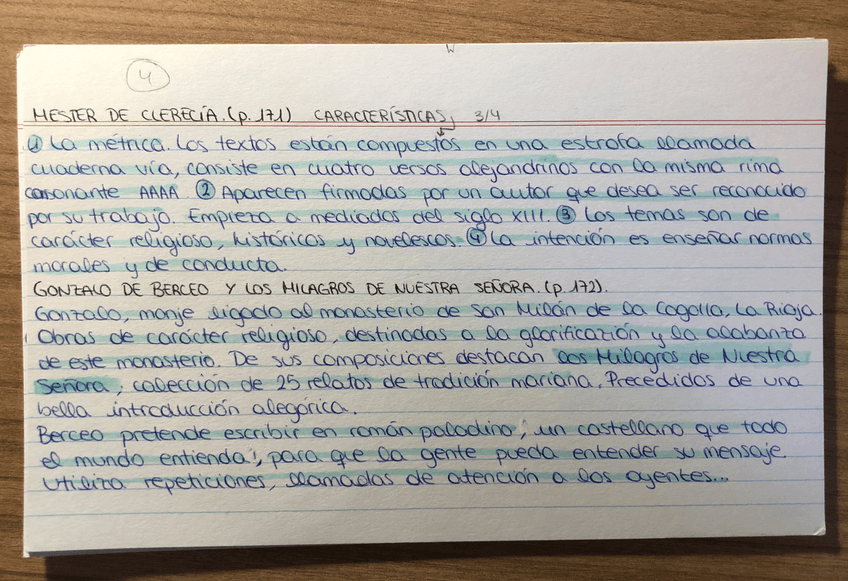 W
4
MESTER DE CLERECÍA. (p. 171) CARACTERÍSTICAS, 3/4
① La métrica. Los textos están compuestos en una estrofa llamada
cuaderna vía, consiste en cuatro versos alejandrinos con la misma rima
consonante AAAA ② Aparecen firmadas por un autor que desea ser reconocido
por su trabajo. Empieza a mediados del siglo XIII. ③ Los temas son de
carácter religioso, históricos y novelescos. ④ La intención es enseñar normas
morales y de conducta.
GONZALO DE BERCEO Y LOS MILAGROS DE NUESTRA SEÑORA. (p. 172).
Gonzalo, monje ligado al monasterio de San Millán de la Cogolla, La Rioja.
Obras de carácter religioso, destinadas a la glorificación y la alabanza
de este monasterio. De sus composiciones destacan Los Milagros de Nuestra
Señora, colección de 25 relatos de tradición mariana. Precedidos de una
bella introducción alegórica.
Berceo pretende escribir en román paladino, un castellano que todo
el mundo entienda, para que la gente pueda entender su mensaje.
Utiliza repeticiones, llamadas de atención a los oyentes...